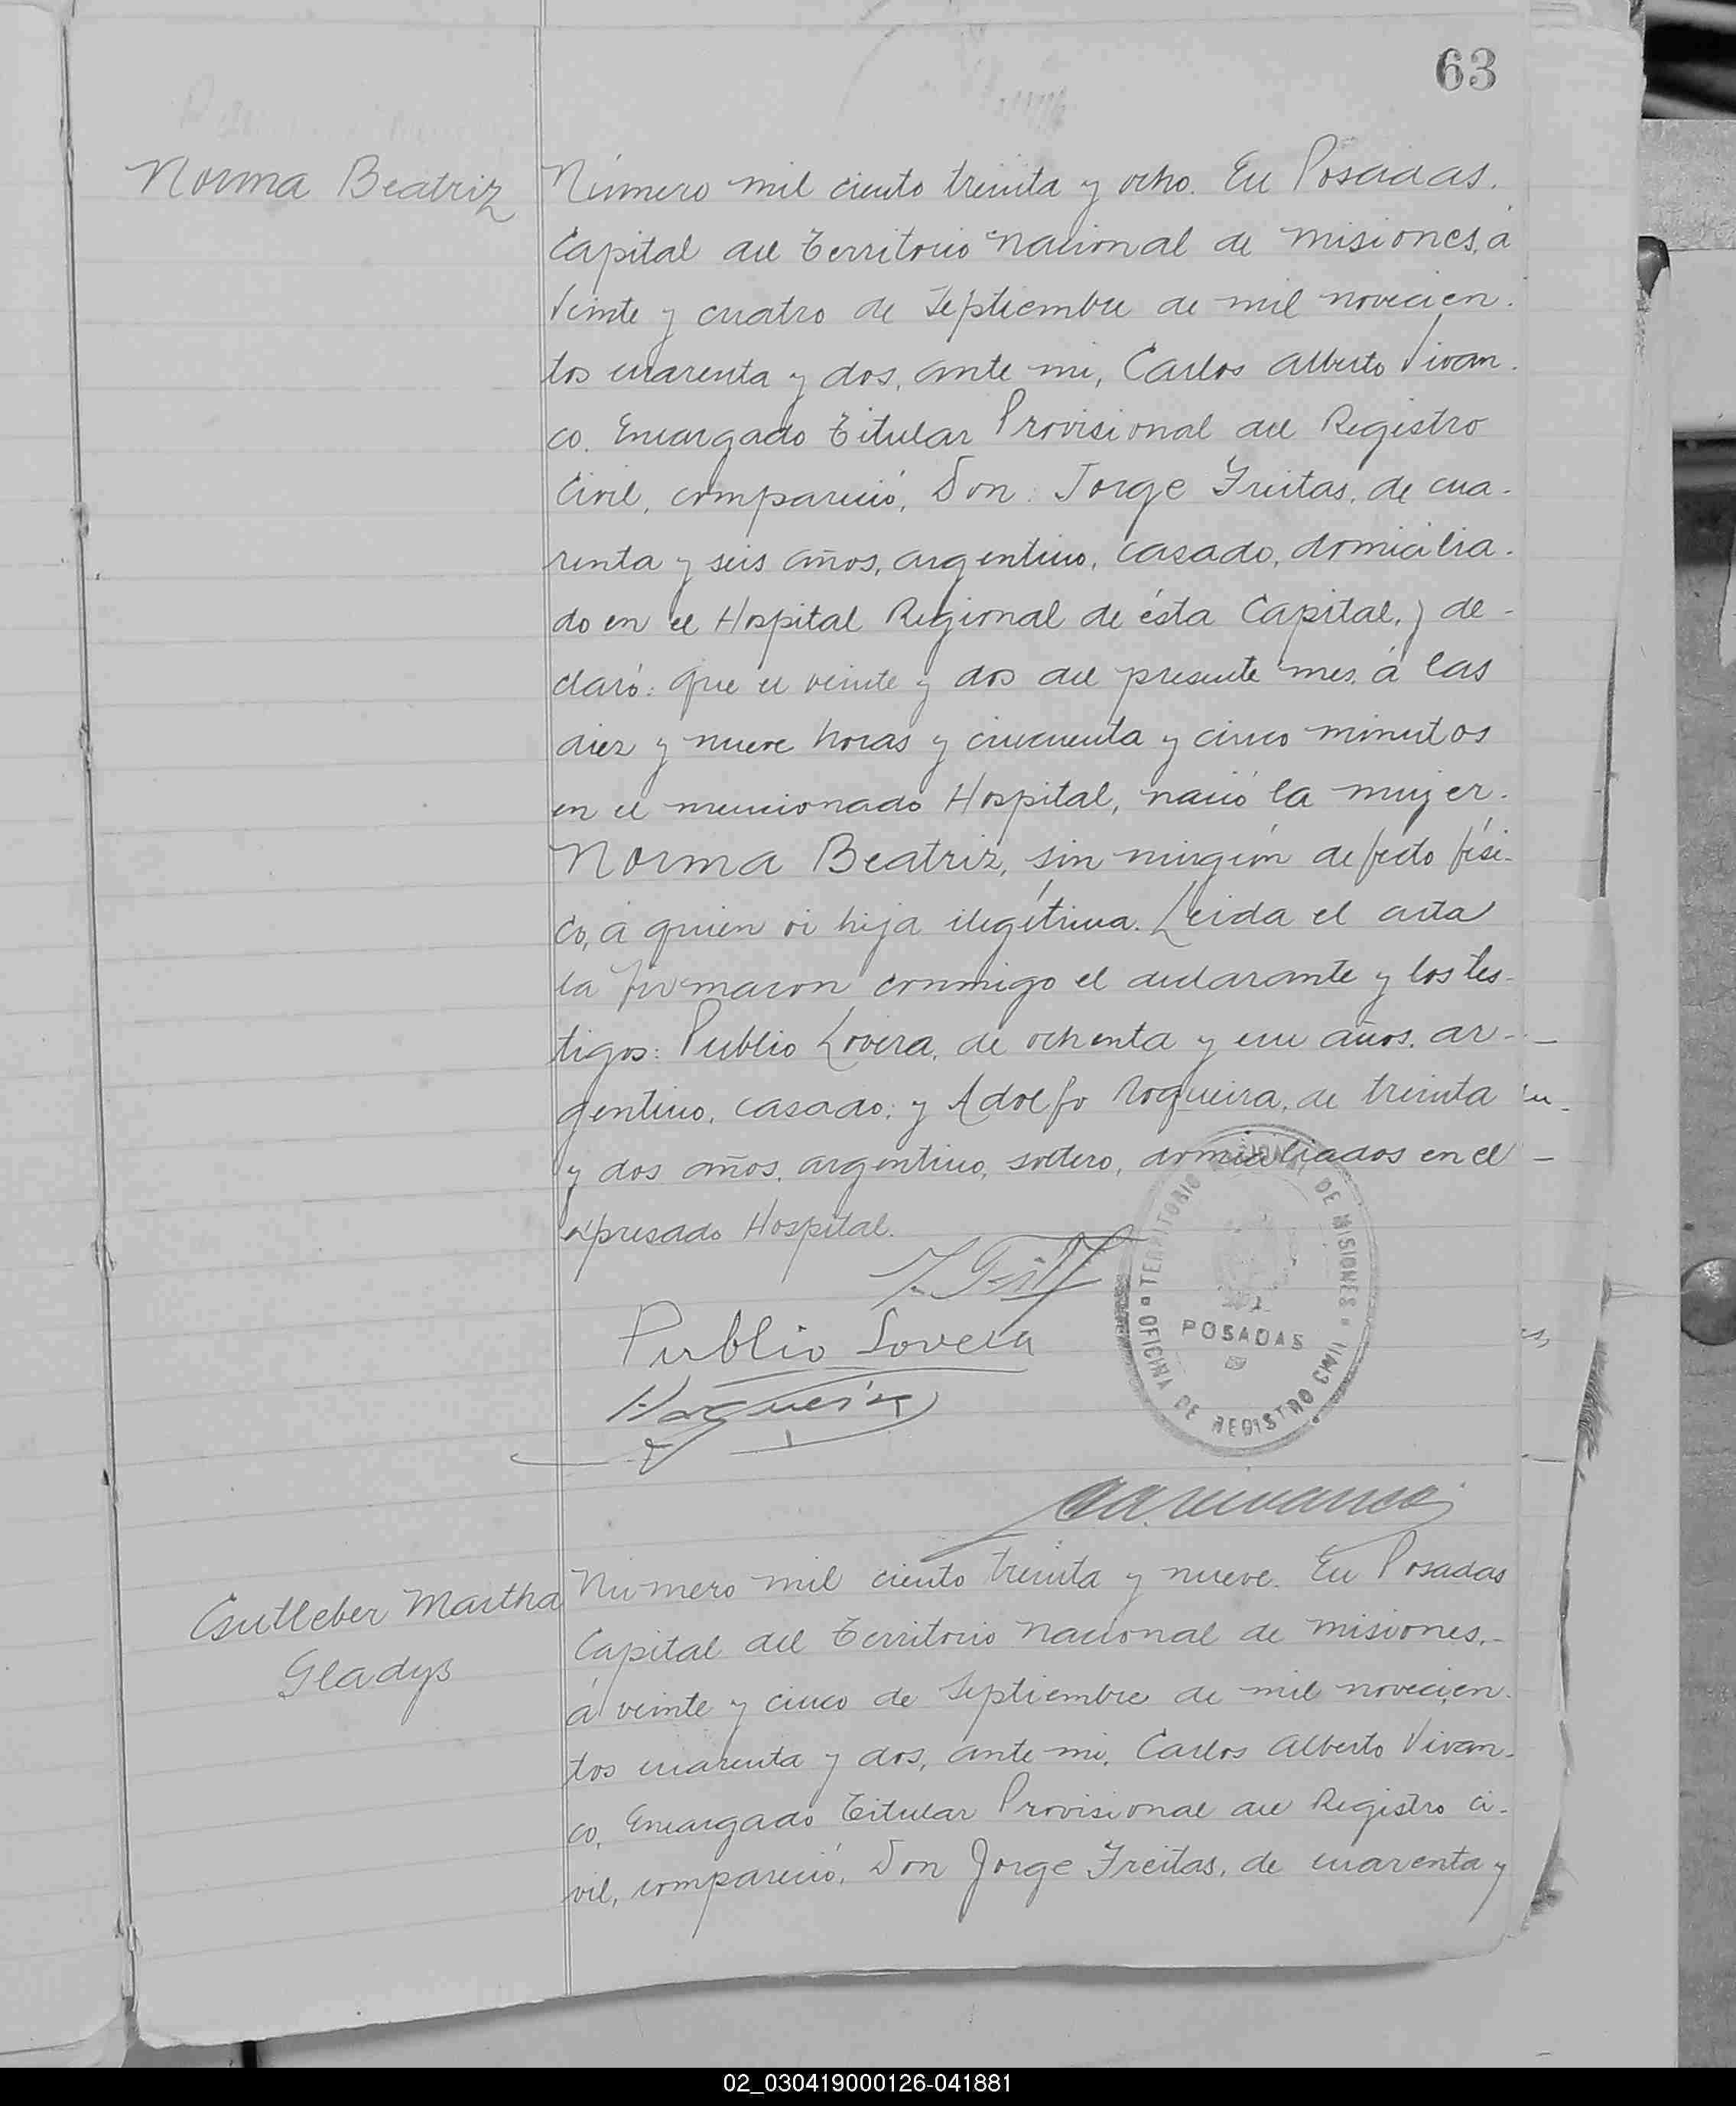 63
Norma Beatriz
Número mil ciento treinta y ocho. En Posadas.
Capital del Territorio Nacional de Misiones, á
veinte y cuatro de Septiembre de mil novecien-
tos cuarenta y dos, ante mi, Carlos Alberto Vivan-
co. Encargado Titular Provisional del Registro
Civil, compareció, Don: Jorge Freitas, de cua-
renta y seis años, argentino, casado, domicilia-
do en el Hospital Regional de ésta Capital, y de-
claró: Que el veinte y dos del presente mes, á las
diez y nueve horas y cincuenta y cinco minutos
en el mencionado Hospital, nació la mujer.
Norma Beatriz, sin ningún defecto físi-
co, á quien vi hija ilegítima. Leida el acta
la firmaron conmigo el declarante y los tes-
tigos: Publio Lovera, de ochenta y un años, ar-
gentino, casado; y Adolfo Noqueira, de treinta
y dos años, argentino, soltero, domiciliados en el
expresado Hospital.
Publio Lovera
TERRITORIO NACIONAL DE MISIONES
POSADAS
OFICINA DE REGISTRO CIVIL
Csutleber Martha
Gladys
Número mil ciento treinta y nueve. En Posadas
Capital del Territorio Nacional de Misiones,-
á veinte y cinco de Septiembre de mil novecien-
tos cuarenta y dos, ante mi, Carlos Alberto Vivan-
co, Encargado Titular Provisional del Registro Ci-
vil, compareció, Don Jorge Freitas, de cuarenta y
02_030419000126-041881